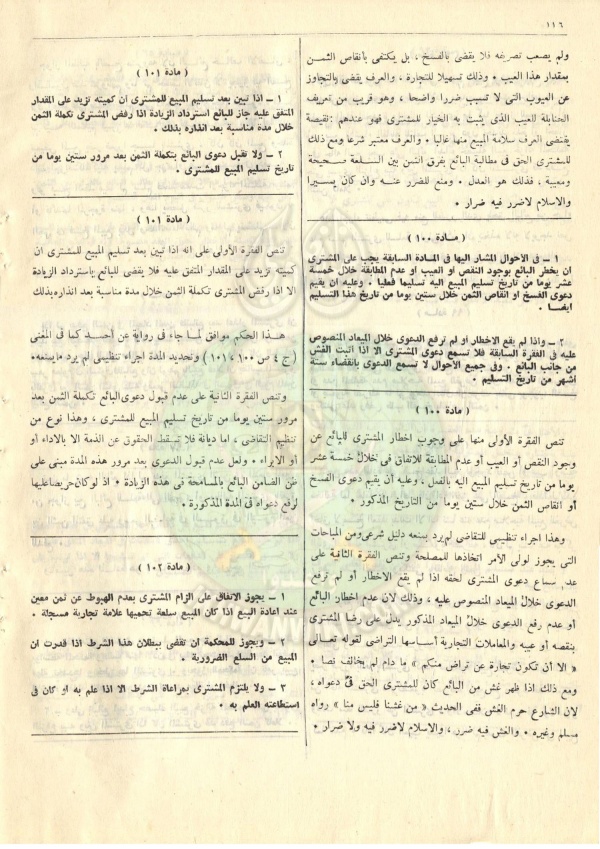 ١١٦
ولم يصعب تصريفه فلا يقضى بالفسخ ، بل يكتفى بأنقاص الثمن
بمقدار هذا العيب . وذلك تسهيلا للتجارة ، والعرف يقضى بالتجاوز
عن العيوب التى لا تسبب ضررا واضحا ، وهو قريب من تعريف
الحنابلة للعيب الذى يثبت به الخيار للمشترى فهو عندهم : نقيصة
يقتضى العرف سلامة المبيع منها غالبا . والعرف معتبر شرعا ومع ذلك
للمشترى الحق فى مطالبة البائع بفرق الثمن بين السلعة صحيحة
ومعيبة ، فذلك هو العدل . ومنع للضرر عنه وان كان يسيرا
والاسلام لاضرر فيه ضرار .
( مادة ١٠٠ )
١ – فى الأحوال المشار اليها فى المادة السابقة يجب على المشترى
ان يخطر البائع بوجود النقص أو العيب او عدم المطابقة خلال خمسة
عشر يوما من تاريخ تسليم المبيع اليه تسليما فعليا . وعليه أن يقيم
دعوى الفسخ او انقاص الثمن خلال ستين يوما من تاريخ هذا التسليم
ايضا .
٢ – واذا لم يقع الاخطار او لم ترفع الدعوى خلال الميعاد المنصوص
عليه فى الفقرة السابقة فلا تسمع دعوى المشترى الا اذا اثبت الغش
من جانب البائع . وفى جميع الأحوال لا تسمع الدعوى بانقضاء ستة
اشهر من تاريخ التسليم .
( مادة ١٠٠ )
تنص الفقرة الأولى منها على وجوب اخطار المشترى للبائع عن
وجود النقص أو العيب أو عدم المطابقة للاتفاق فى خلال خمسة عشر
يوما من تاريخ تسليم المبيع اليه بالفعل ، وعليه أن يقيم دعوى الفسخ
أو انقاص الثمن خلال ستين يوما من التاريخ المذكور .
وهذا اجراء تنظيمى للتقاضى لم يرد بمنعه دليل شرعى ومن المباحات
التى يجوز لولى الأمر اتخاذها للمصلحة وتنص الفقرة الثانية على
عدم سماع دعوى المشترى لحقه اذا لم يقع الاخطار أو لم ترفع
الدعوى خلال الميعاد المنصوص عليه ، وذلك لان عدم اخطار البائع
أو عدم رفع الدعوى خلال الميعاد المذكور يدل على رضا المشترى
بنقصه أو عيبه والمعاملات التجارية أساسها التراضى لقوله تعالى
« الا أن تكون تجارة عن تراض منكم » ما دام لم يخالف نصا .
ومع ذلك اذا ظهر غش من البائع كان للمشترى الحق فى دعواه ،
لان الشارع حرم الغش ففى الحديث « من غشنا فليس منا » رواه
مسلم وغيره . والغش فيه ضرر ، والاسلام لاضرر فيه ولا ضرار .
( مادة ١٠١ )
١ – اذا تبين بعد تسليم المبيع للمشترى ان كميته تزيد على المقدار
المتفق عليه جاز للبائع استرداد الزيادة اذا رفض المشترى تكملة الثمن
خلال مدة مناسبة بعد انذاره بذلك .
٢ – ولا تقبل دعوى البائع بتكملة الثمن بعد مرور ستين يوما من
تاريخ تسليم المبيع للمشترى .
( مادة ١٠١ )
تنص الفقرة الأولى على انه اذا تبين بعد تسليم المبيع للمشترى ان
كميته تزيد على المقدار المتفق عليه فلا يقضى للبائع باسترداد الزيادة
الا اذا رفض المشترى تكملة الثمن خلال مدة مناسبة بعد انذاره بذلك
هذا الحكم موافق لما جاء فى رواية عن أحمد كما فى المغنى
( ج ٤ ص ١٠٠ ، ١٠١ ) وتحديد المدة اجراء تنظيمى لم يرد مايمنعه .
وتنص الفقرة الثانية على عدم قبول دعوى البائع تكملة الثمن بعد
مرور ستين يوما من تاريخ تسليم المبيع للمشترى ، وهذا نوع من
تنظيم التقاضى ، اما ديانة فلا تسقط الحقوق عن الذمة الا بالاداء أو
أو الابراء . ولعل عدم قبول الدعوى بعد مرور هذه المدة مبنى على
ظن الضامن البائع بالمسامحة فى هذه الزيادة . اذ لو كان حريصا عليها
لرفع دعواه فى المدة المذكورة .
( مادة ١٠٢ )
١ – يجوز الاتفاق على الزام المشترى بعدم الهبوط عن ثمن معين
عند اعادة البيع اذا كان المبيع سلعة تحميها علامة تجارية مسجلة .
٢ – ويجوز للمحكمة ان تقضى ببطلان هذا الشرط اذا قدرت ان
المبيع من السلع الضرورية .
٣ – ولا يلتزم المشترى بمراعاة الشرط الا اذا علم به او كان فى
استطاعته العلم به .